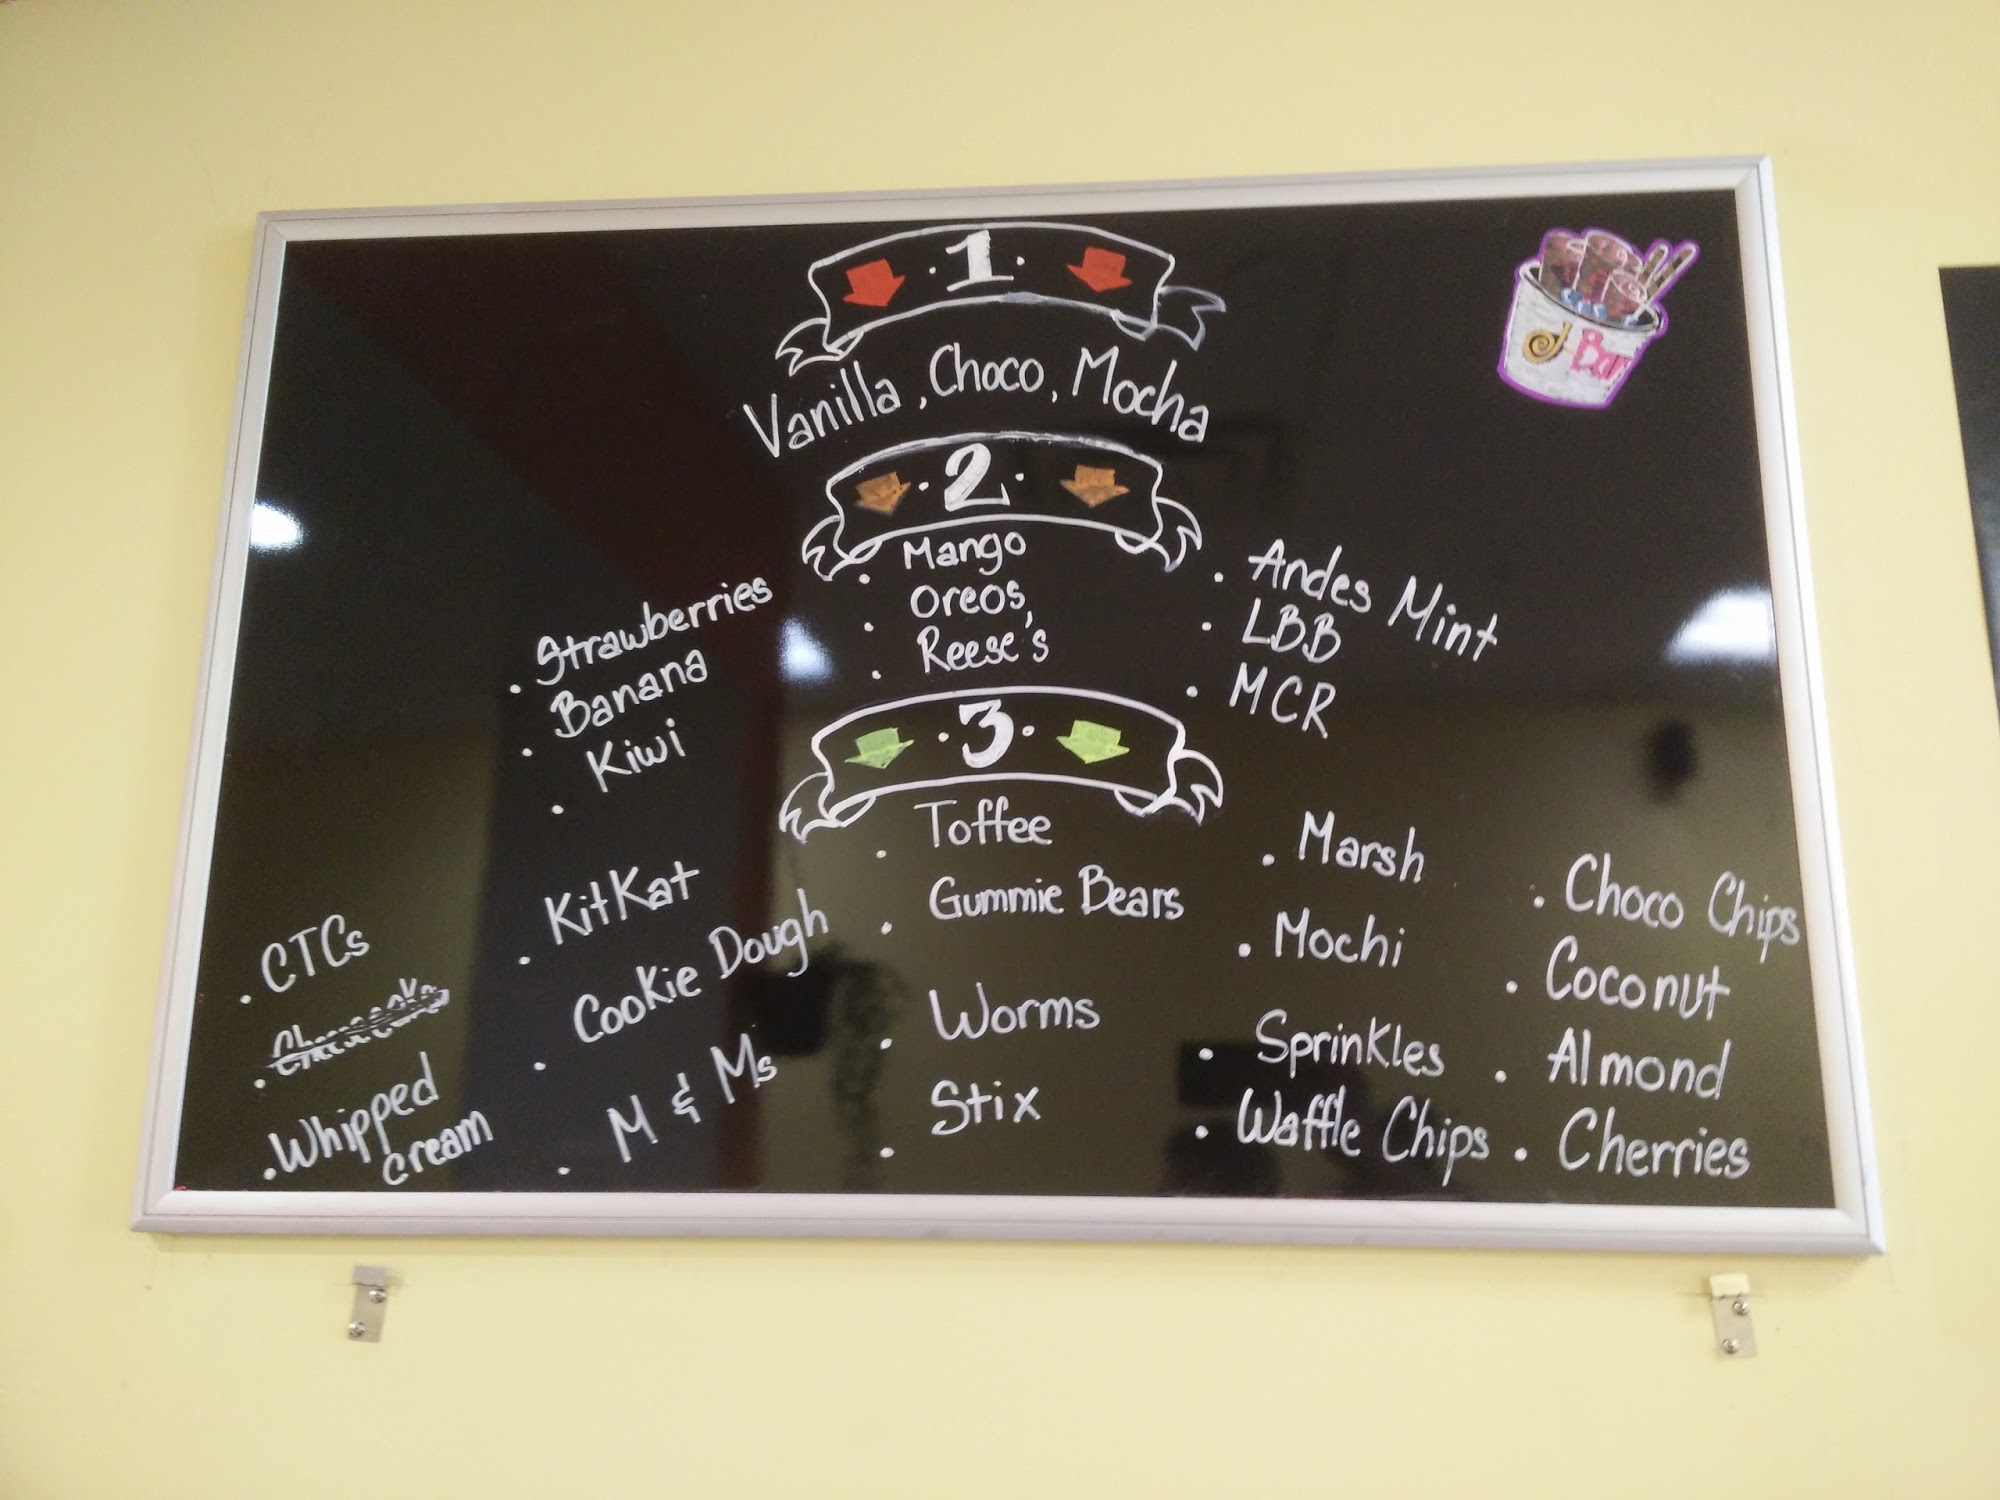 1
Vanilla, Choco, Mocha
2
Strawberries
Banana
Kiwi
Mango
Oreos,
Reese's
Andes Mint
LBB
MCR
3
CTCs
Whipped
Cream
KitKat
Cookie Dough
M & Ms
Toffee
Gummie Bears
Worms
Stix
Marsh
Mochi
Sprinkles
Waffle Chips
Choco Chips
Coconut
Almond
Cherries
Bar